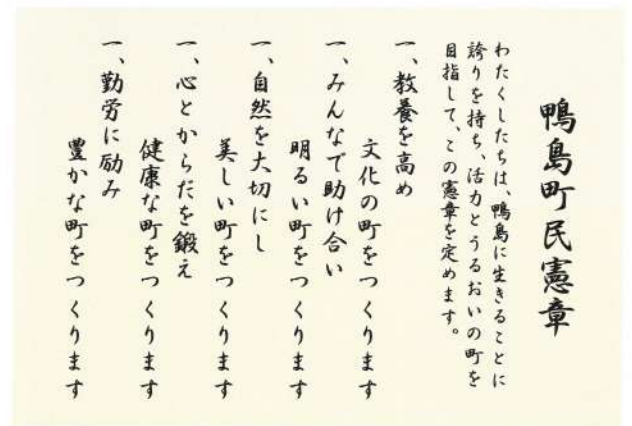 鴨島町民憲章
わたくしたちは、鴨島に生きることに
誇りを持ち、活力とうるおいの町を
目指して、この憲章を定めます。
一、教養を高め
文化の町をつくります
一、みんなで助け合い
明るい町をつくります
一、自然を大切にし
美しい町をつくります
一、心とからだを鍛え
健康な町をつくります
一、勤労に励み
豊かな町をつくります